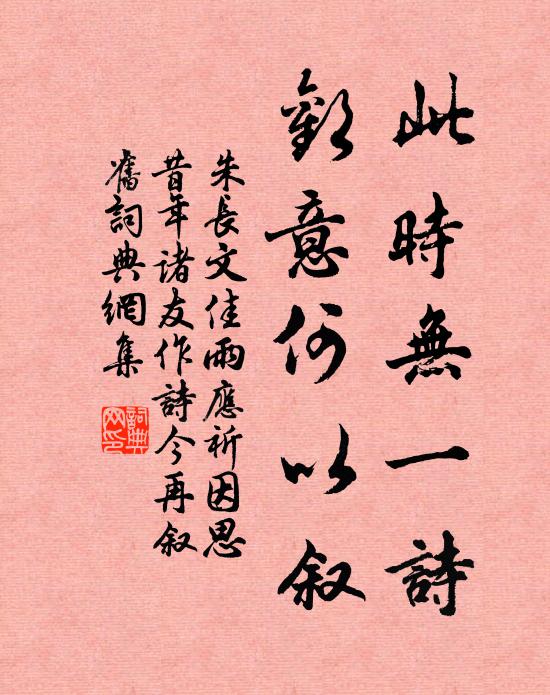 此時無一詩
歡意何以叙
朱長文佳雨應祈因思
昔年諸友作詩今再叙
舊詞典網集
詞典
网印